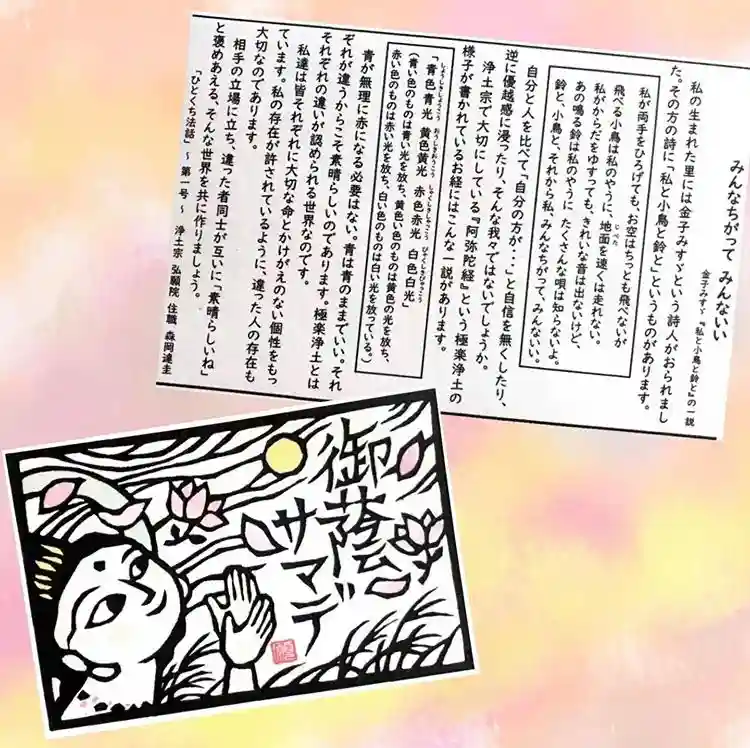 みんなちがって みんないい
金子みすゞ『私と小鳥と鈴と』の一説
私の生まれた里には金子みすゞという詩人がおられまし
た。その方の詩に「私と小鳥と鈴と」というものがあります。
私が両手をひろげても、お空はちっとも飛べないが
飛べる小鳥は私のやうに、地面を速くは走れない。
じべた
私がからだをゆすっても、きれいな音は出ないけど、
あの鳴る鈴は私のやうに たくさんな唄は知らないよ。
鈴と、小鳥と、それから私、みんなちがって、みんないい。
自分と人を比べて「自分の方が・・・」と自信を無くしたり、
逆に優越感に浸ったり、そんな我々ではないでしょうか。
浄土宗で大切にしている『阿弥陀経』という極楽浄土の
様子が書かれているお経にはこんな一説があります。
しょうしきしょうこう おうしきおうこう しゃくしきしゃっこう びゃくしきびゃっこう
「青色青光 黄色黄光 赤色赤光 白色白光」
（青い色のものは青い光を放ち、黄色い色のものは黄色の光を放ち、
赤い色のものは赤い光を放ち、白い色のものは白い光を放っている。）
青が無理に赤になる必要はない。青は青のままでいい。それ
ぞれが違うからこそ素晴らしいのであります。極楽浄土とは
それぞれの違いが認められる世界なのです。
私達は皆それぞれに大切な命とかけがえのない個性をもっ
ています。私の存在が許されているように、違った人の存在も
大切なのであります。
相手の立場に立ち、違った者同士が互いに「素晴らしいね」
と褒めあえる、そんな世界を共に作りましょう。
「ひとくち法話」～ 第一号 ～ 浄土宗 弘願院 住職 森岡達圭
御蔭
サマデ